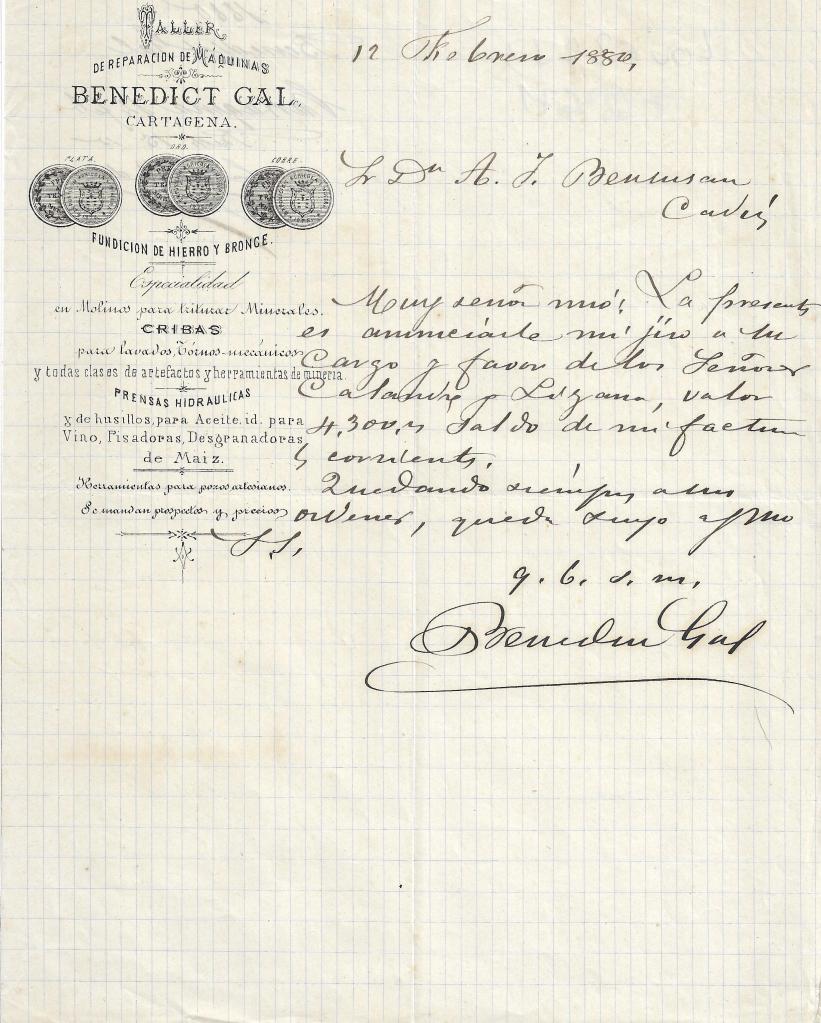 TALLER
DE REPARACION DE MÁQUINAS
BENEDICT GAL.
CARTAGENA.
PLATA.
ORO.
COBRE.
FUNDICION DE HIERRO Y BRONCE.
Especialidad
en Molinos para triturar Minerales.
CRIBAS
para lavados, Tórnos-mecánicos
y todas clases de artefactos y herramientas de mineria.
PRENSAS HIDRAULICAS
y de husillos, para Aceite, id. para
Vino, Pisadoras, Desgranadoras
de Maiz.
Herramientas para pozos artesianos.
Se mandan prospectos y precios
12 Febrero 1880,
Sr Dn A. J. Bensusan
Cadiz
Muy señor mió: La presente
es anunciarle mi jiro a su
Cargo y favor de los Señores
Calandre y Lizana, valor
4,300, saldo de mi factura
corriente.
Quedando siempre a sus
ordenes, queda suyo afmo
S. S.
q. b. s. m.
Benedict Gal